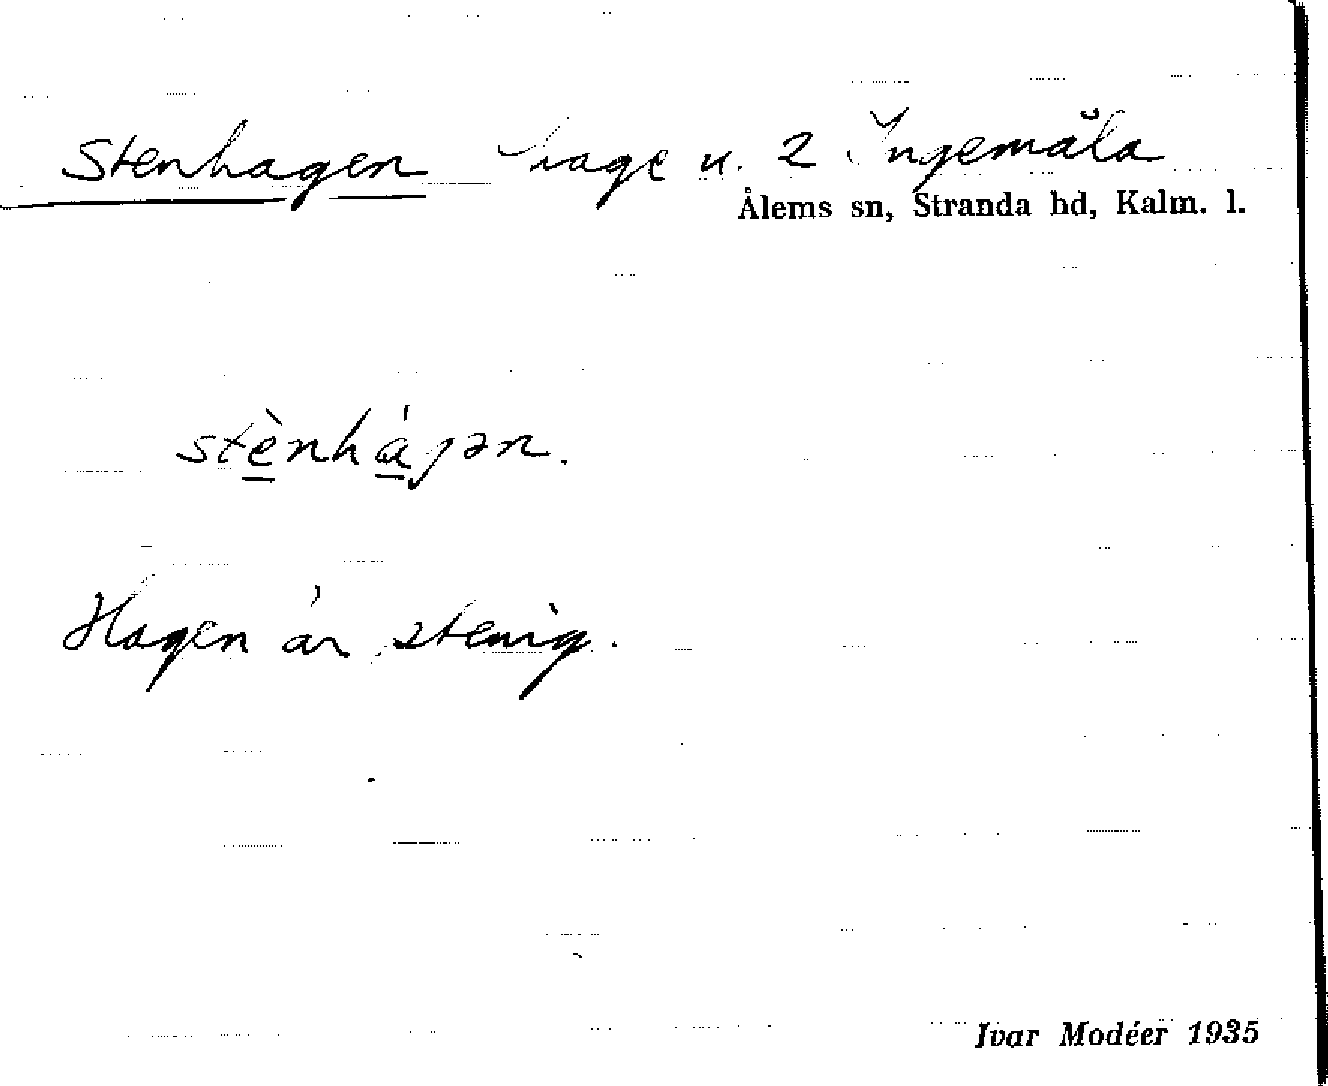 Stenhagen hage u. 2 Ingemåla
Ålems sn, Stranda hd, Kalm. l.
stènhágən.
Hagen är stenig.
Ivar Modéer 1935